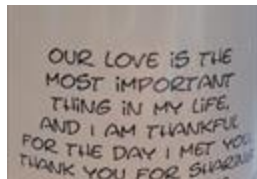 OUR LOVE iS THE
MOST iMPORTANT
THING iN MY LiFE,
AND I AM THANKFUL
FOR THE DAY I MET YOU
THANK YOU FOR SHARING